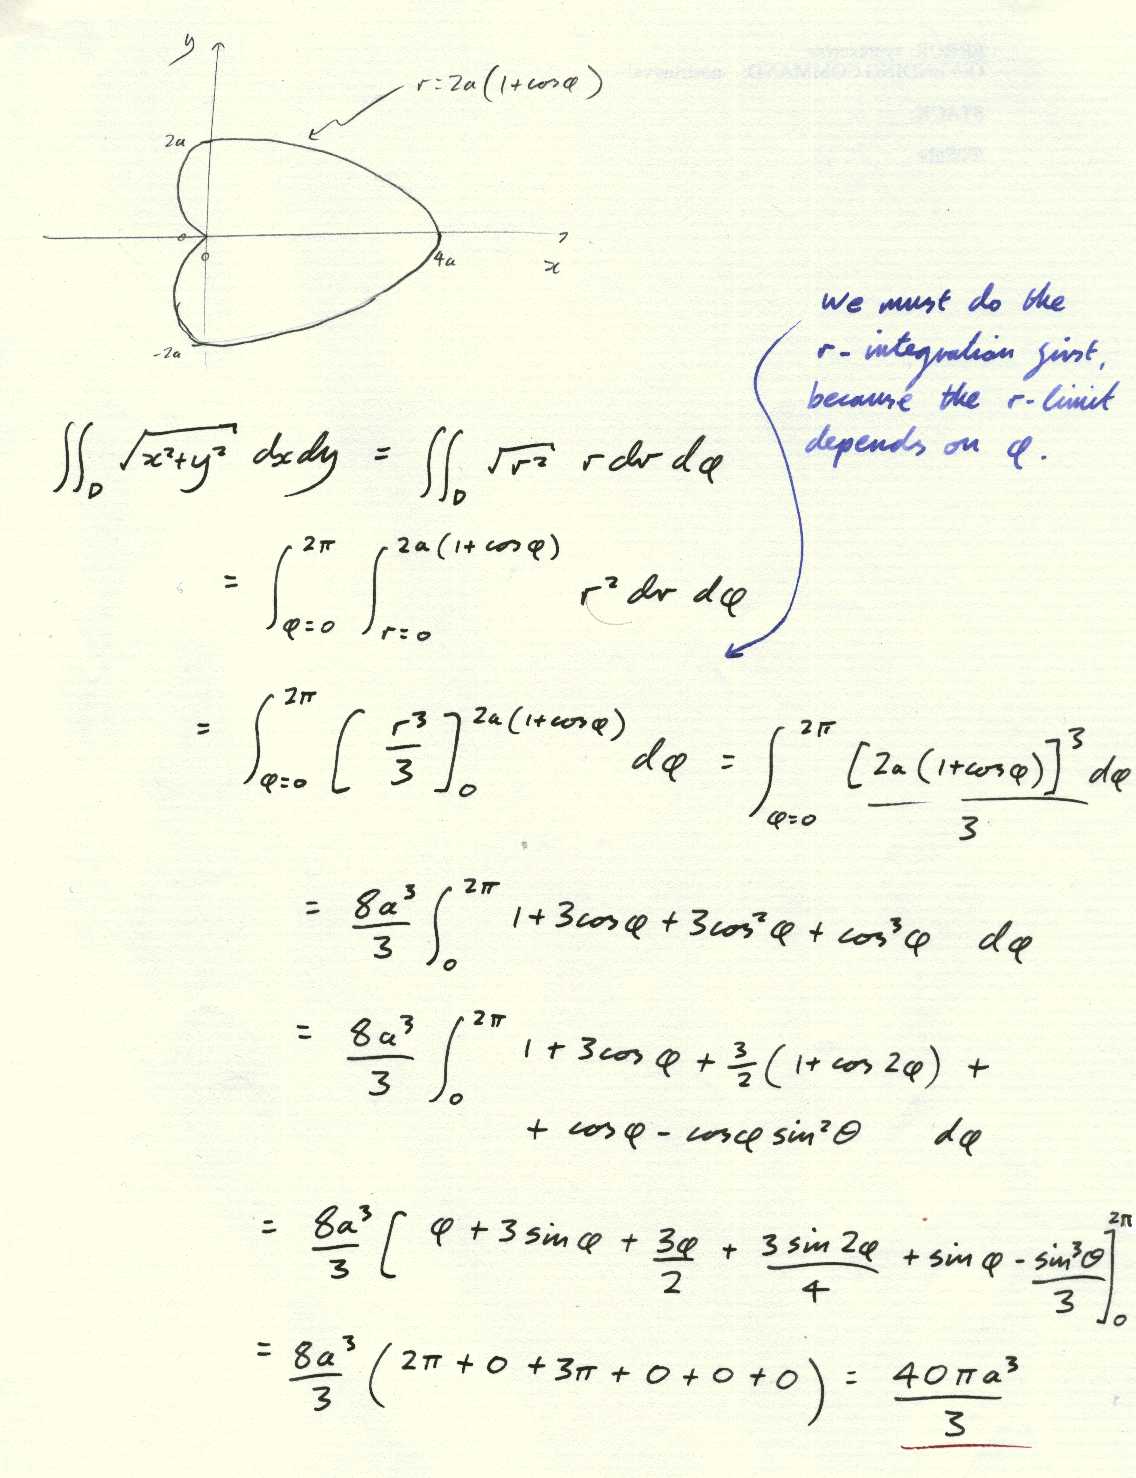 y
r=2a(1+cosφ)
2a
0
0
4a
x
-2a
We must do the
r-integration first,
because the r-limit
depends on φ.
∬_D √(x²+y²) dxdy = ∬_D √(r²) r dr dφ
= ∫_{φ=0}^{2π} ∫_{r=0}^{2a(1+cosφ)} r² dr dφ
= ∫_{φ=0}^{2π} [r³/3]_0^{2a(1+cosφ)} dφ = ∫_{φ=0}^{2π} [2a(1+cosφ)]³/3 dφ
= 8a³/3 ∫_0^{2π} 1+3cosφ+3cos²φ+cos³φ dφ
= 8a³/3 ∫_0^{2π} 1+3cosφ+3/2(1+cos2φ) +
+ cosφ - cosφ sin²θ dφ
= 8a³/3 [φ+3sinφ+3φ/2+3sin2φ/4+sinφ-sin³θ/3]_0^{2π}
= 8a³/3 (2π+0+3π+0+0+0) = 40πa³/3